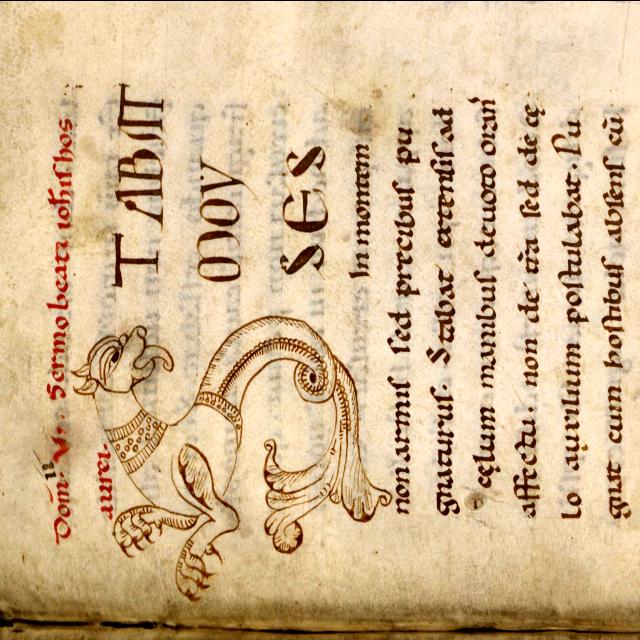 Dom̄. V. Sermo beati iohis hos
aurei.
TABAT
MOY
SES
In montem
non armis sed precibus pu
gnaturus. Stabat extensis ad
cęlum manibus devoto orań
affectu. non de tr̄a sed de cę
lo auxilium postulabat. Pu
gnat cum hostibus absens cū